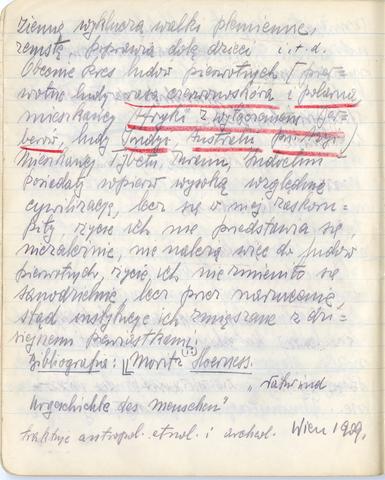 ziemię wyklucza walki plemienne,
zemstę, poprawia dolę dzieci i.t.d.
Obecnie kres ludów pierwotnych [pier=
wotne ludy rasa czerwonoskóra i polarna
mieszkańcy Afryki z wyłączeniem [Ber=
berów, ludy Indyj, Australii
mieszkańcy Tybetu, Iranu,
posiadały wysoką względnie
cywilizację, lecz się w niej zaskoru=
piły, życie ich nie przedstawia się
niezależnie, nie należą więc do ludów
pierwotnych, życie ich nie zmieniło się
samodzielnie, lecz przez narzucenie,
stąd instytucje ich zmieszane z dzi=
siejszem
Bibliografia: Moritz Hoerness.
"Natur und
Urgeschichte des Menschen"
traktuje antropol. etnol. i archeol. Wien 1909.